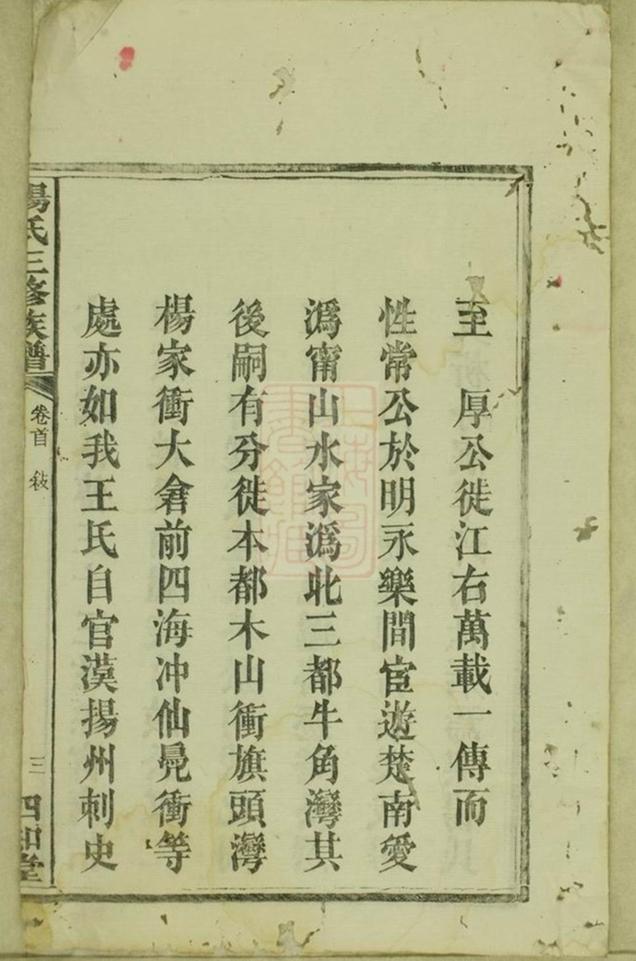 至　厚公徙江右萬載一傳而
性常公於明永樂間宦遊楚南愛
溈甯山水家溈北三都牛角灣其
後嗣有分徙本都木山衝旗頭灣
楊家衝大倉前四海冲仙凫衝等
處亦如我王氏自官漠揚州刺史
楊氏三修族譜
卷首
敍
三
四知堂